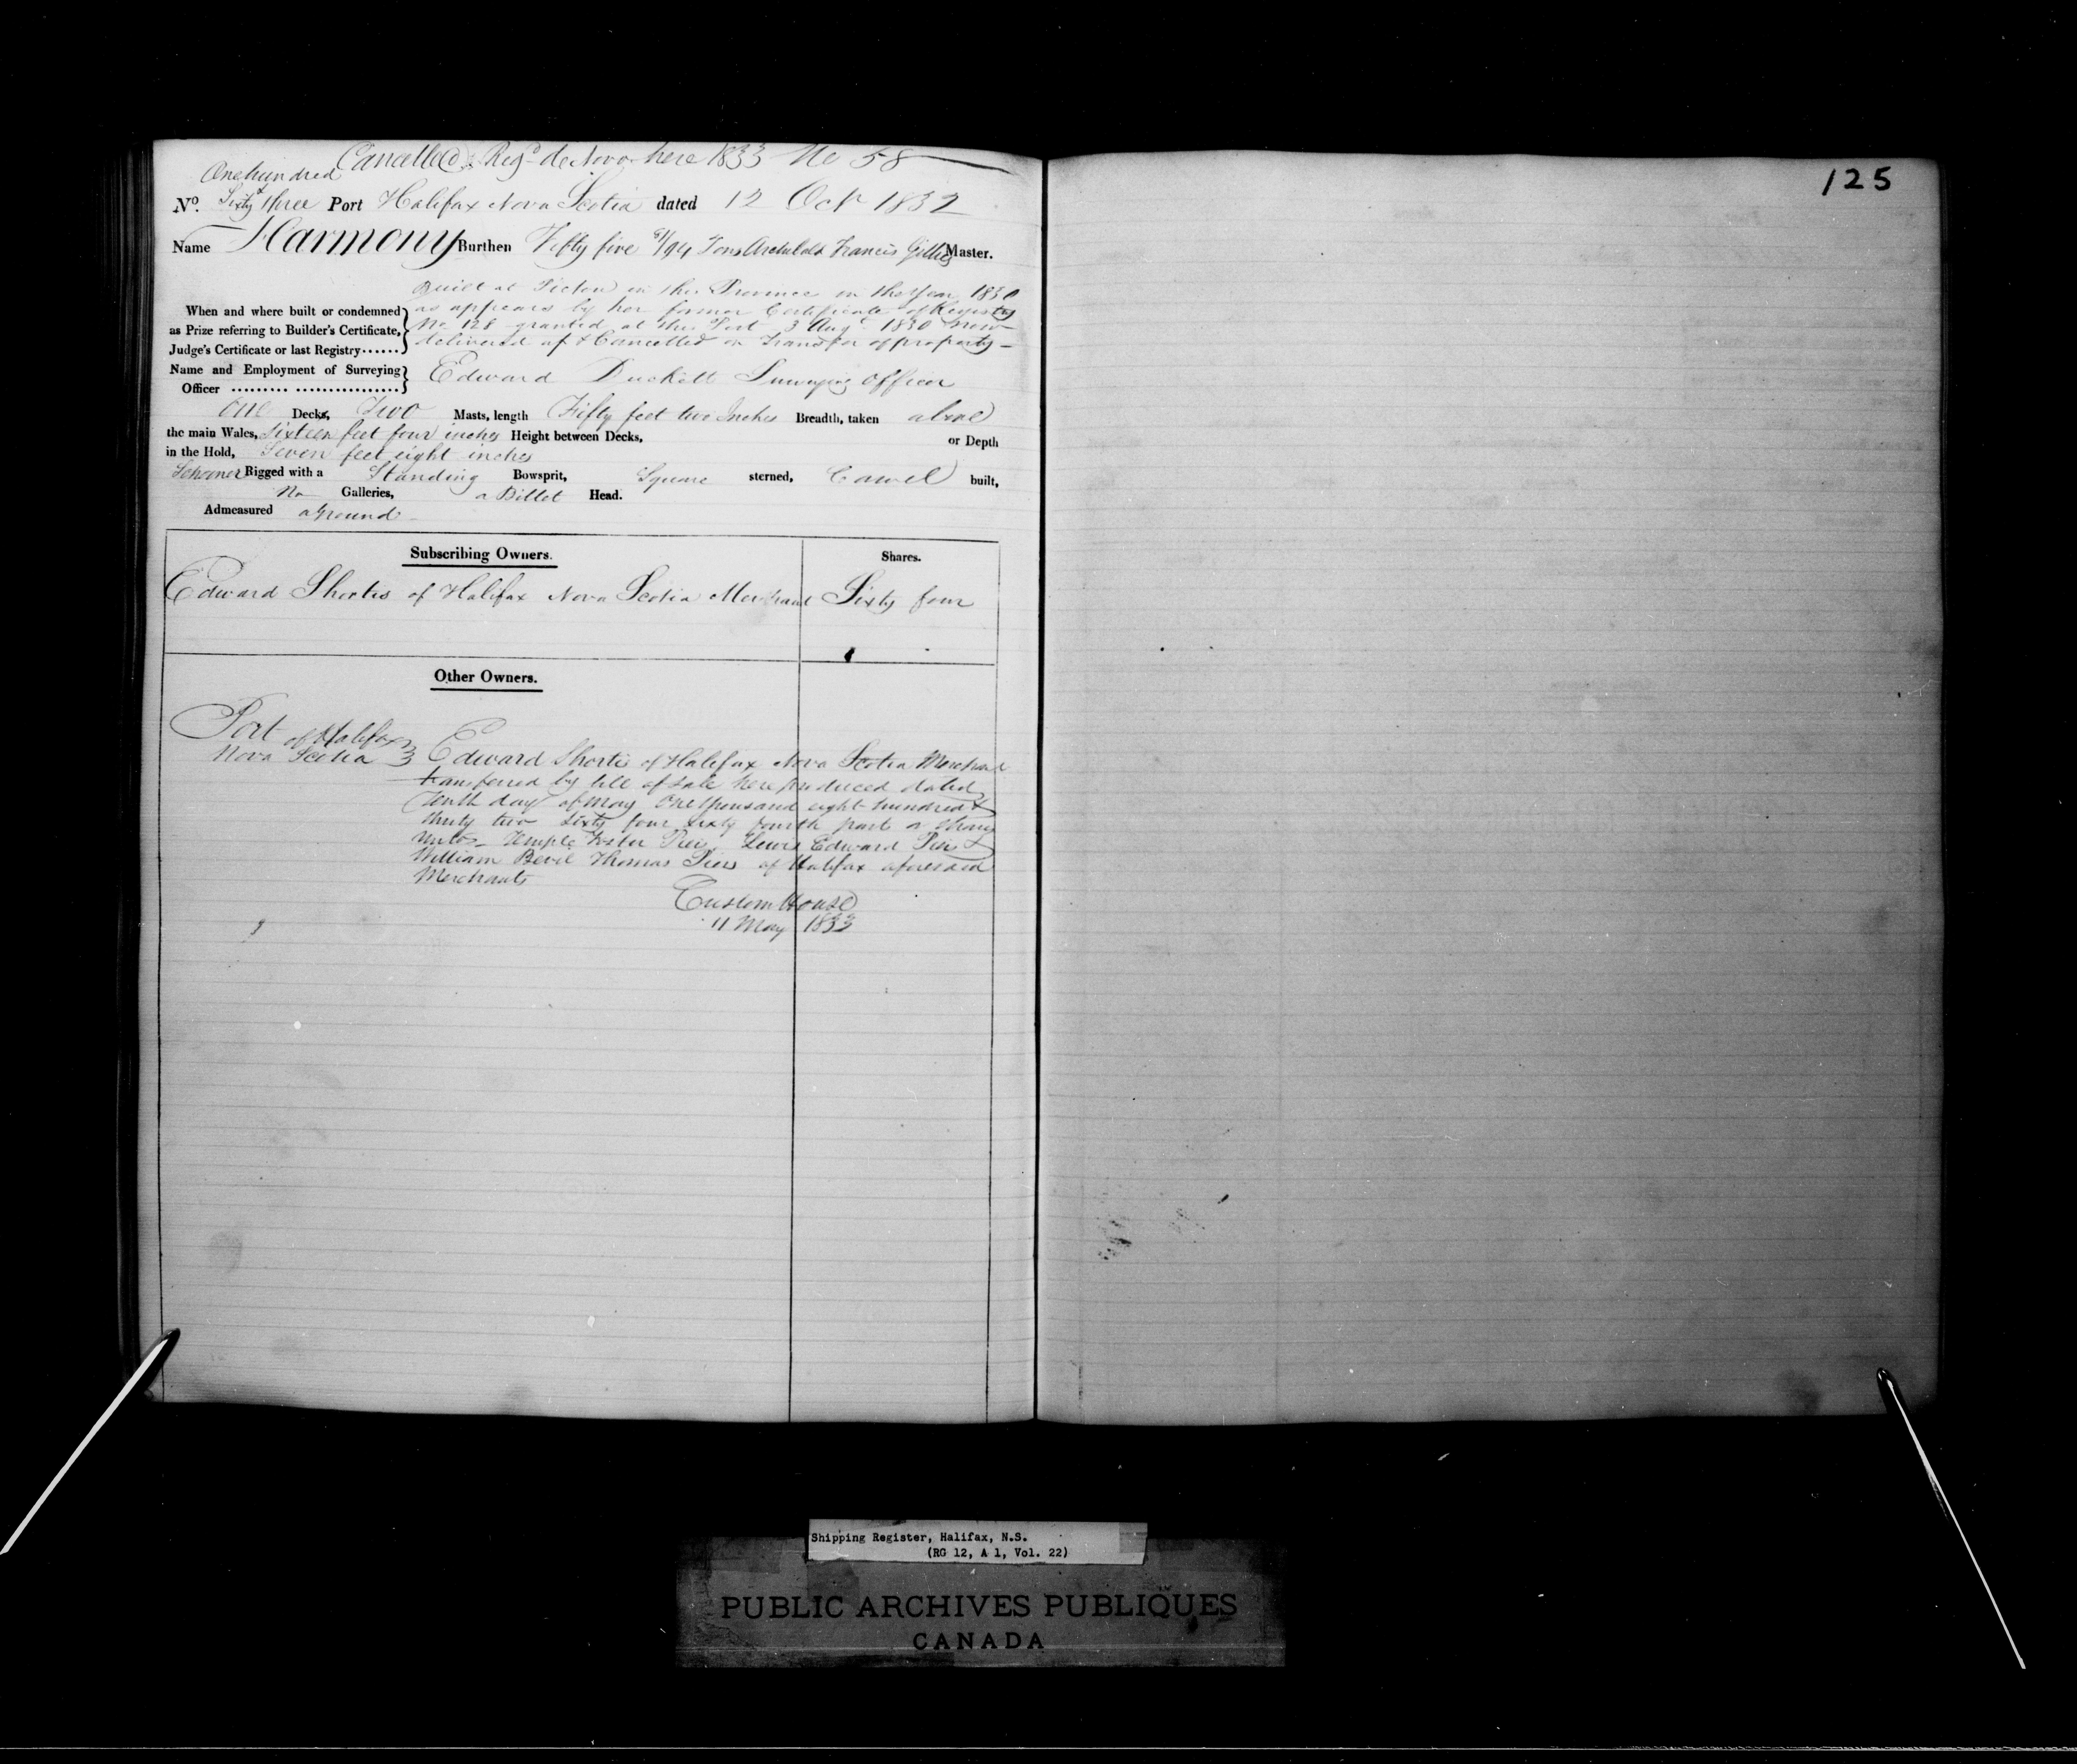 Cancelled & Regd de Novo here 1833 No 58
One hundred &
No. Sixty three Port Halifax Nova Scotia dated 12 Oct 1832
Name Harmony Burthen Fifty five 91/94 Tons Archibald Francis Gillies Master.
Built at Pictou in this Province in the Year 1830
When and where built or condemned as appears by her former Certificate of Registry
as Prize referring to Builder's Certificate, No 128 granted at this Port 3 Augt 1830 now
Judge's Certificate or last Registry...... delivered up & Cancelled on Transfer of property
Name and Employment of Surveying
Officer ......... ................ Edward Duckett Surveying Officer
One Decks, Two Masts, length Fifty feet two Inches Breadth, taken above
the main Wales, Sixteen feet four inches Height between Decks, or Depth
in the Hold, Seven feet eight inches
Schooner Rigged with a Standing Bowsprit, Square sterned, Carvel built,
No Galleries, a Billet Head.
Admeasured aground
Subscribing Owners. Shares.
Edward Shortis of Halifax Nova Scotia Merchant Sixty four
Other Owners.
Port of Halifax
Nova Scotia } Edward Shortis of Halifax Nova Scotia Merchant
transferred by bill of sale here produced dated
Tenth day of May One thousand eight hundred &
thirty two sixty four sixty fourth part or shares
unto Temple Foster Piers, Lewis Edward Piers &
William Bevil Thomas Piers of Halifax aforesaid
Merchants
Custom House
11 May 1833
125
Shipping Register, Halifax, N.S.
(RG 12, A 1, Vol. 22)
PUBLIC ARCHIVES PUBLIQUES
CANADA